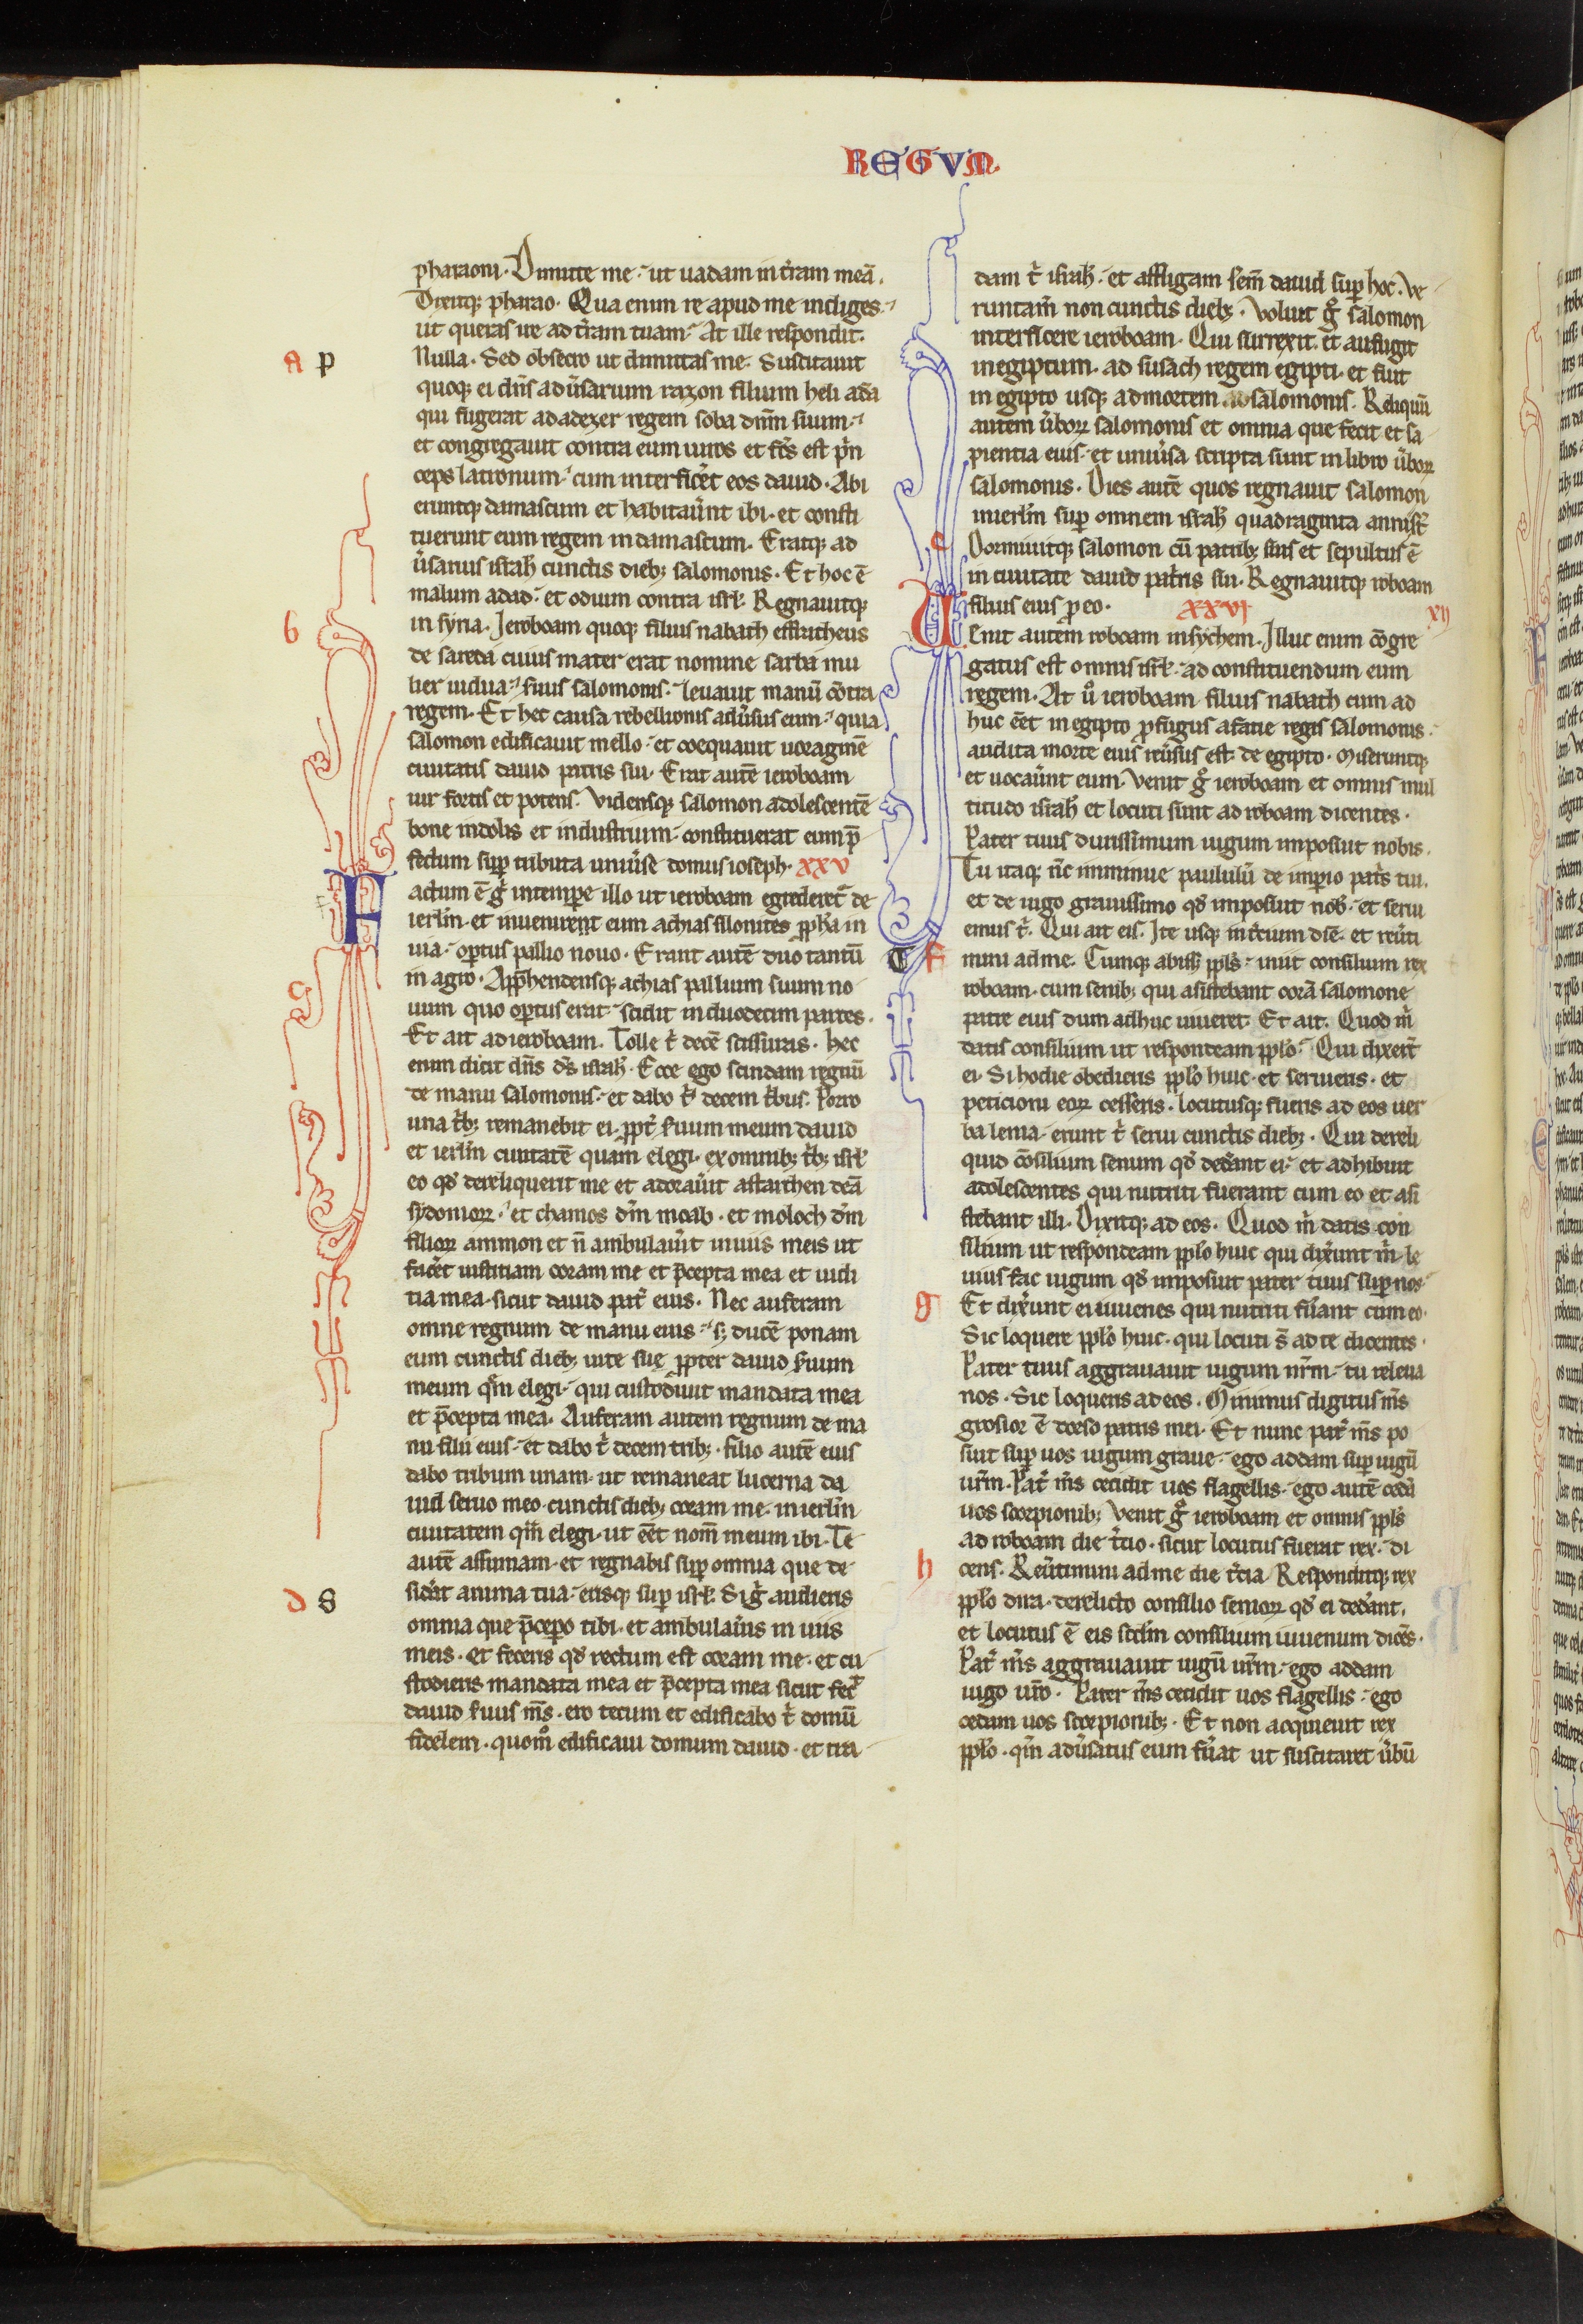 REGVM
pharaoni. Dimitte me. ut uadam in t̉ram meā.
Dixitq; pharao. Qua enim re apud me indiges.
ut queras ire ad t̉ram tuam. At ille respondit.
A p
Nulla. Sed obsecro ut dimittas me. Suscitauit
quoq; ei dn̄s adūsarium razon filium heli ada
qui fugerat adadezer regem soba dn̄m suum.
et congregauit contra eum uiros et fc̄s est p̄n
ceps latronum. cum interficēt eos dauid. Abi
eruntq; damascum et habitaūnt ibi. et consti
tuerunt eum regem in damascum. Eratq; ad
ūsarius israł cunctis dieb; salomonis. Et hoc ē
malum adad. et odium contra isrł. Regnauitq;
b
in syria. Ieroboam quoq; filius nabath effratheus
de sareda cuius mater erat nomine sarba mu
lier uidua. suus salomonis. leuauit manū cōtra
regem. Et hec causa rebellionis adūsus eum. quia
salomon edificauit mello. et coequauit uoraginē
ciuitatis dauid patris sui. Erat autē ieroboam
uir fortis et potens. Vidensq; salomon adolescentē
bone indolis et industrium. constituerat eum p̄
fectum sup̄ tributa uniūse domus ioseph. XXV
Factum ē g̉ in tempore illo ut ieroboam egrederet̉ de
ierl̄m. et inueniret eum achias silonites pp̄ha in
uia. optus pallio nouo. Erant autē duo tantū
in agro. App̄hendensq; achias pallium suum no
uum quo optus erat. scidit in duodecim partes.
Et ait ad ieroboam. Tolle t̉ decē scissuras. hec
enim dicit dn̄s ds̄ israł. Ecce ego scindam regnū
de manu salomonis. et dabo t̉ decem t̉bus. Porro
una t̉b; remanebit ei. ppt̉ s̉uum meum dauid
et ierl̄m ciuitatē quam elegi. ex omnib; t̉b; isrł
eo qd̄ dereliquerit me et adoraūit astarthen deā
sydonioꝝ. et chamos dm̄ moab. et moloch dm̄
filioꝝ ammon et n̄ ambulaūit in uiis meis ut
facēt iustitiam coram me et p̄cepta mea et iudi
tia mea. sicut dauid pat̉ eius. Nec auferam
omne regnum de manu eius. s; ducē ponam
eum cunctis dieb; uite sue ppter dauid s̉uum
meum qm̄ elegi. qui custodiuit mandata mea
et p̄cepta mea. Auferam autem regnum de ma
nu filii eius. et dabo t̉ decem trib;. filio autē eius
dabo tribum unam. ut remaneat lucerna da
uid seruo meo. cunctis dieb; coram me. in ierl̄m
ciuitatem qm̄ elegi. ut eēt nom̄ meum ibi. Te
autē assumam. et regnabis sup̄ omnia que de
d S
sid̉at anima tua. erisq; sup̄ isrł. Si g̉ audieris
omnia que p̄cepero tibi. et ambulaūis in uiis
meis. et feceris qd̄ rectum est coram me. et cu
stodiens mandata mea et p̄cepta mea sicut fec̉
dauid s̉uus m̄s. ero tecum et edificabo t̉ domū
fidelem. quom̊ edificaui domum dauid. et tra
dam t̉ israł. et affligam sem̄ dauid sup̄ hoc. Ve
runtam̄ non cunctis dieb;. Voluit g̊ salomon
interficere ieroboam. Qui surrexit. et aufugit
in egiptum. ad susach regem egipti. et fuit
in egipto usq; ad mortem salomonis. Reliquū
autem ūboꝝ salomonis et omnia que fecit et sa
pientia eius. et uniūsa scripta sunt in libro ūboꝝ
salomonis. Dies autē quos regnauit salomon
in ierl̄m sup̄ omnem israł quadraginta anni st̄
e
Dormiuitq; salomon cū patrib; suis et sepultus ē
in ciuitate dauid patris sui. Regnauitq; roboam
filius eius pro eo. XXVI
XII
Uenit autem roboam in sychem. Illuc enim cōgre
gatus est omnis isrł. ad constituendum eum
regem. At ů ieroboam filius nabath cum ad
huc eēt in egipto profugus a facie regis salomonis.
audita morte eius reūsus est de egipto. Miseruntq;
et uocaūnt eum. Venit g̊ ieroboam et omnis mul
titudo israł et locuti sunt ad roboam dicentes.
Pater tuus durissimum iugum imposuit nobis.
Tu itaq; nc̄ imminue paululū de imperio pat̉s tui.
et de iugo grauissimo qd̄ imposuit nob̄. et serui
emus t̉. Qui ait eis. Ite usq; in t̉cium diē. et reūti
T F
mini ad me. Cumq; abiss; ppl̄s. iniit consilium rex
roboam. cum senib; qui asistebant corā salomone
patre eius dum adhuc uiueret. Et ait. Quod m̉
datis consilium ut respondeam ppl̄o. Qui dixer̉t
ei. Si hodie obedieris ppl̄o huic. et seruieris. et
peticioni eoꝝ cesseris. locutusq; fueris ad eos uer
ba lenia. erunt t̉ serui cunctis dieb;. Qui dereli
quid cōsilium senum qd̄ ded̉ant ei. et adhibuit
adolescentes qui nutriti fuerant cum eo et asi
stebant illi. Dixitq; ad eos. Quod m̉ datis con
silium ut respondeam ppl̄o huic qui dix̉unt m̉. le
uius fac iugum qd̄ imposuit pater tuus sup̄ nos.
g
Et dix̉unt ei iuuenes qui nutriti fūant cum eo.
Sic loquere ppl̄o huic. qui locuti s̄ ad te dicentes.
Pater tuus aggrauauit iugum nr̄m. tu releua
nos. Sic loqueris ad eos. Minimus digitus m̄s
grosior ē dorso patris mei. Et nunc pat̉ m̄s po
suit sup̄ uos iugum graue. ego addam sup̄ iugū
ur̄m. Pat̉ m̄s cecidit uos flagellis. ego autē cedā
uos scorpionib; Venit g̊ ieroboam et omnis ppl̄s
ad roboam die t̉cio. sicut locutus fuerat rex. di
h
cens. Reūtimini ad me die t̉cia. Responditq; rex
ppl̄o dira. derelicto consilio senioꝝ qd̄ ei ded̉ant.
et locutus ē eis scd̄m consilium iuuenum dicēs.
Pat̉ m̄s aggrauauit iugū ur̄m. ego addam
iugo ur̄o. Pater m̄s cecidit uos flagellis. ego
cedam uos scorpionib;. Et non acquieuit rex
ppl̄o. qm̄ adūsatus eum fūat ut suscitaret ūbū